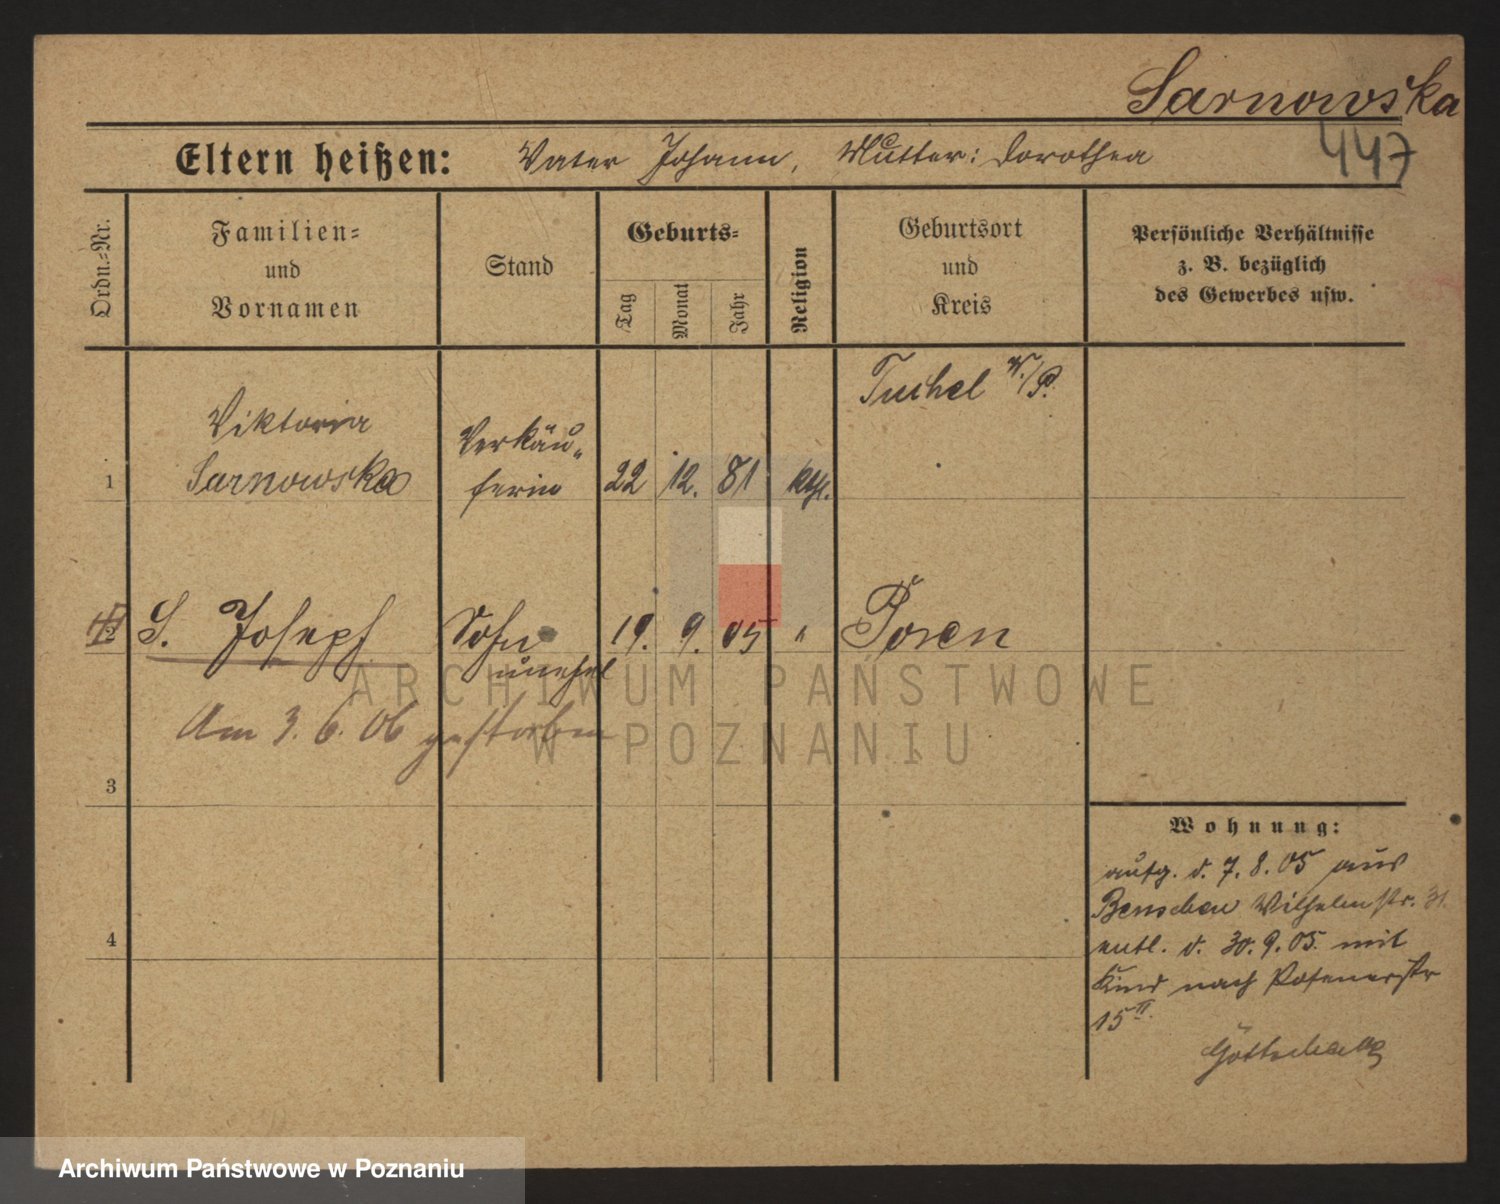 Sarnowska
447
Eltern heißen: Vater Johann, Mutter: Dorothea
Ordn.-Nr.
Familien-
und
Vornamen
Stand
Geburts-
Tag
Monat
Jahr
Religion
Geburtsort
und
Kreis
Persönliche Verhältnisse
z. B. bezüglich
des Gewerbes usw.
Tuchel W./P.
Viktoria
Verkäu-
1 Sarnowska ferin 22 12. 81 kth.
2 S. Joseph Sohn 19. 9. 05 " Posen
unehel
Am 3. 6. 06 gestorben
3
4
Wohnung:
aufg. d. 7. 8. 05 aus
Bentschen Wilhelmstr. 31
entl. d. 30. 9. 05. mit
Kind nach Posenerstr
15 II.
ARCHIWUM PAŃSTWOWE
W POZNANIU
Archiwum Państwowe w Poznaniu